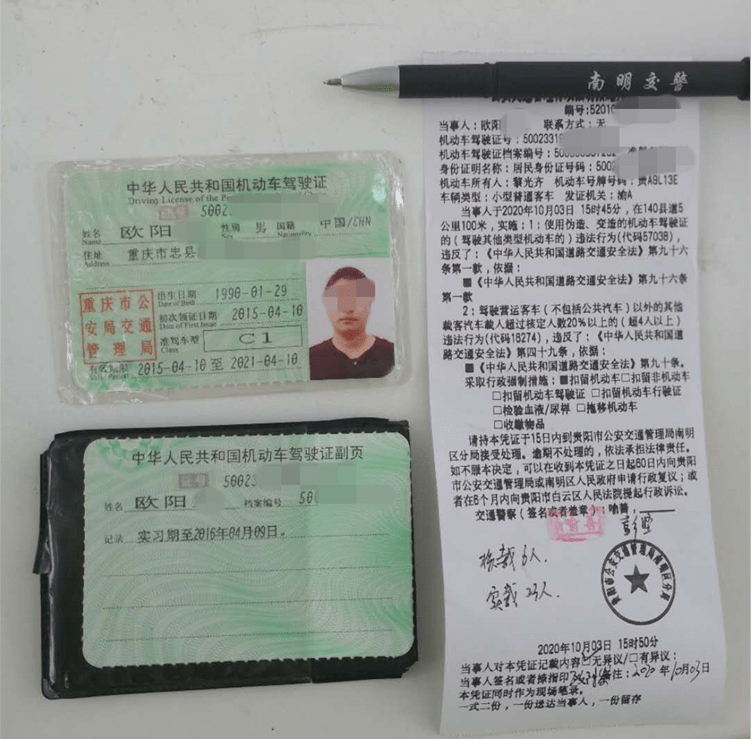 南明交警
编号:5201
当事人：欧阳 联系方式：无
机动车驾驶证号：50023319
机动车驾驶证档案编号：
身份证明名称：居民身份证 号码：500
机动车所有人：黎光齐 机动车号牌号码：贵ABL13E
车辆类型：小型普通客车 发证机关：渝A
当事人于2020年10月03日 15时45分，在140县道5
公里100米，实施：1：使用伪造、变造的机动车驾驶证
的（驾驶其他类型机动车的）违法行为(代码57038)，
违反了：《中华人民共和国道路交通安全法》第九十六
条第一款，依据：
■《中华人民共和国道路交通安全法》第九十六条
第一款
2：驾驶营运客车（不包括公共汽车）以外的其他
载客汽车载人超过核定人数20%以上的（超4人以上）
违法行为(代码18274)，违反了：《中华人民共和国道
路交通安全法》第四十九条，依据：
■《中华人民共和国道路交通安全法》第九十条。
采取行政强制措施：■扣留机动车□扣留非机动车
□扣留机动车驾驶证 □扣留机动车行驶证
□检验血液/尿样 □拖移机动车
□收缴物品
请持本凭证于15日内到贵阳市公安交通管理局南明
区分局接受处理。逾期不处理的，依法承担法律责任。
如不服本决定，可以在收到本凭证之日起60日内向贵阳
市公安交通管理局或南明区人民政府申请行政复议；或
者在6个月内向贵阳市白云区人民法院提起行政诉讼。
交通警察（签名或者盖章）：
核载6人
实载23人.
贵阳市公安交通管理局南明区分局
2020年10月03日 15时50分
当事人对本凭证记载内容□无异议/□有异议：
当事人签名或者捺指印 备注：2020年10月03日
本凭证同时作为现场笔录。
一式二份，一份送达当事人，一份留存
中华人民共和国机动车驾驶证
Driving License of the Pe
证号 5002
姓名 欧阳 性别 男 国籍 中国/CHN
Name Nationality
住址 重庆市忠县
Address
出生日期 1990-01-29
Date of Birth
初次领证日期 2015-04-10
Date of First Issue
准驾车型 C1
Class
有效期限 2015-04-10 至 2021-04-10
重庆市公
安局交通
管理局
中华人民共和国机动车驾驶证副页
证号 50023
姓名 欧阳 档案编号 50
记录 实习期至2016年04月09日。